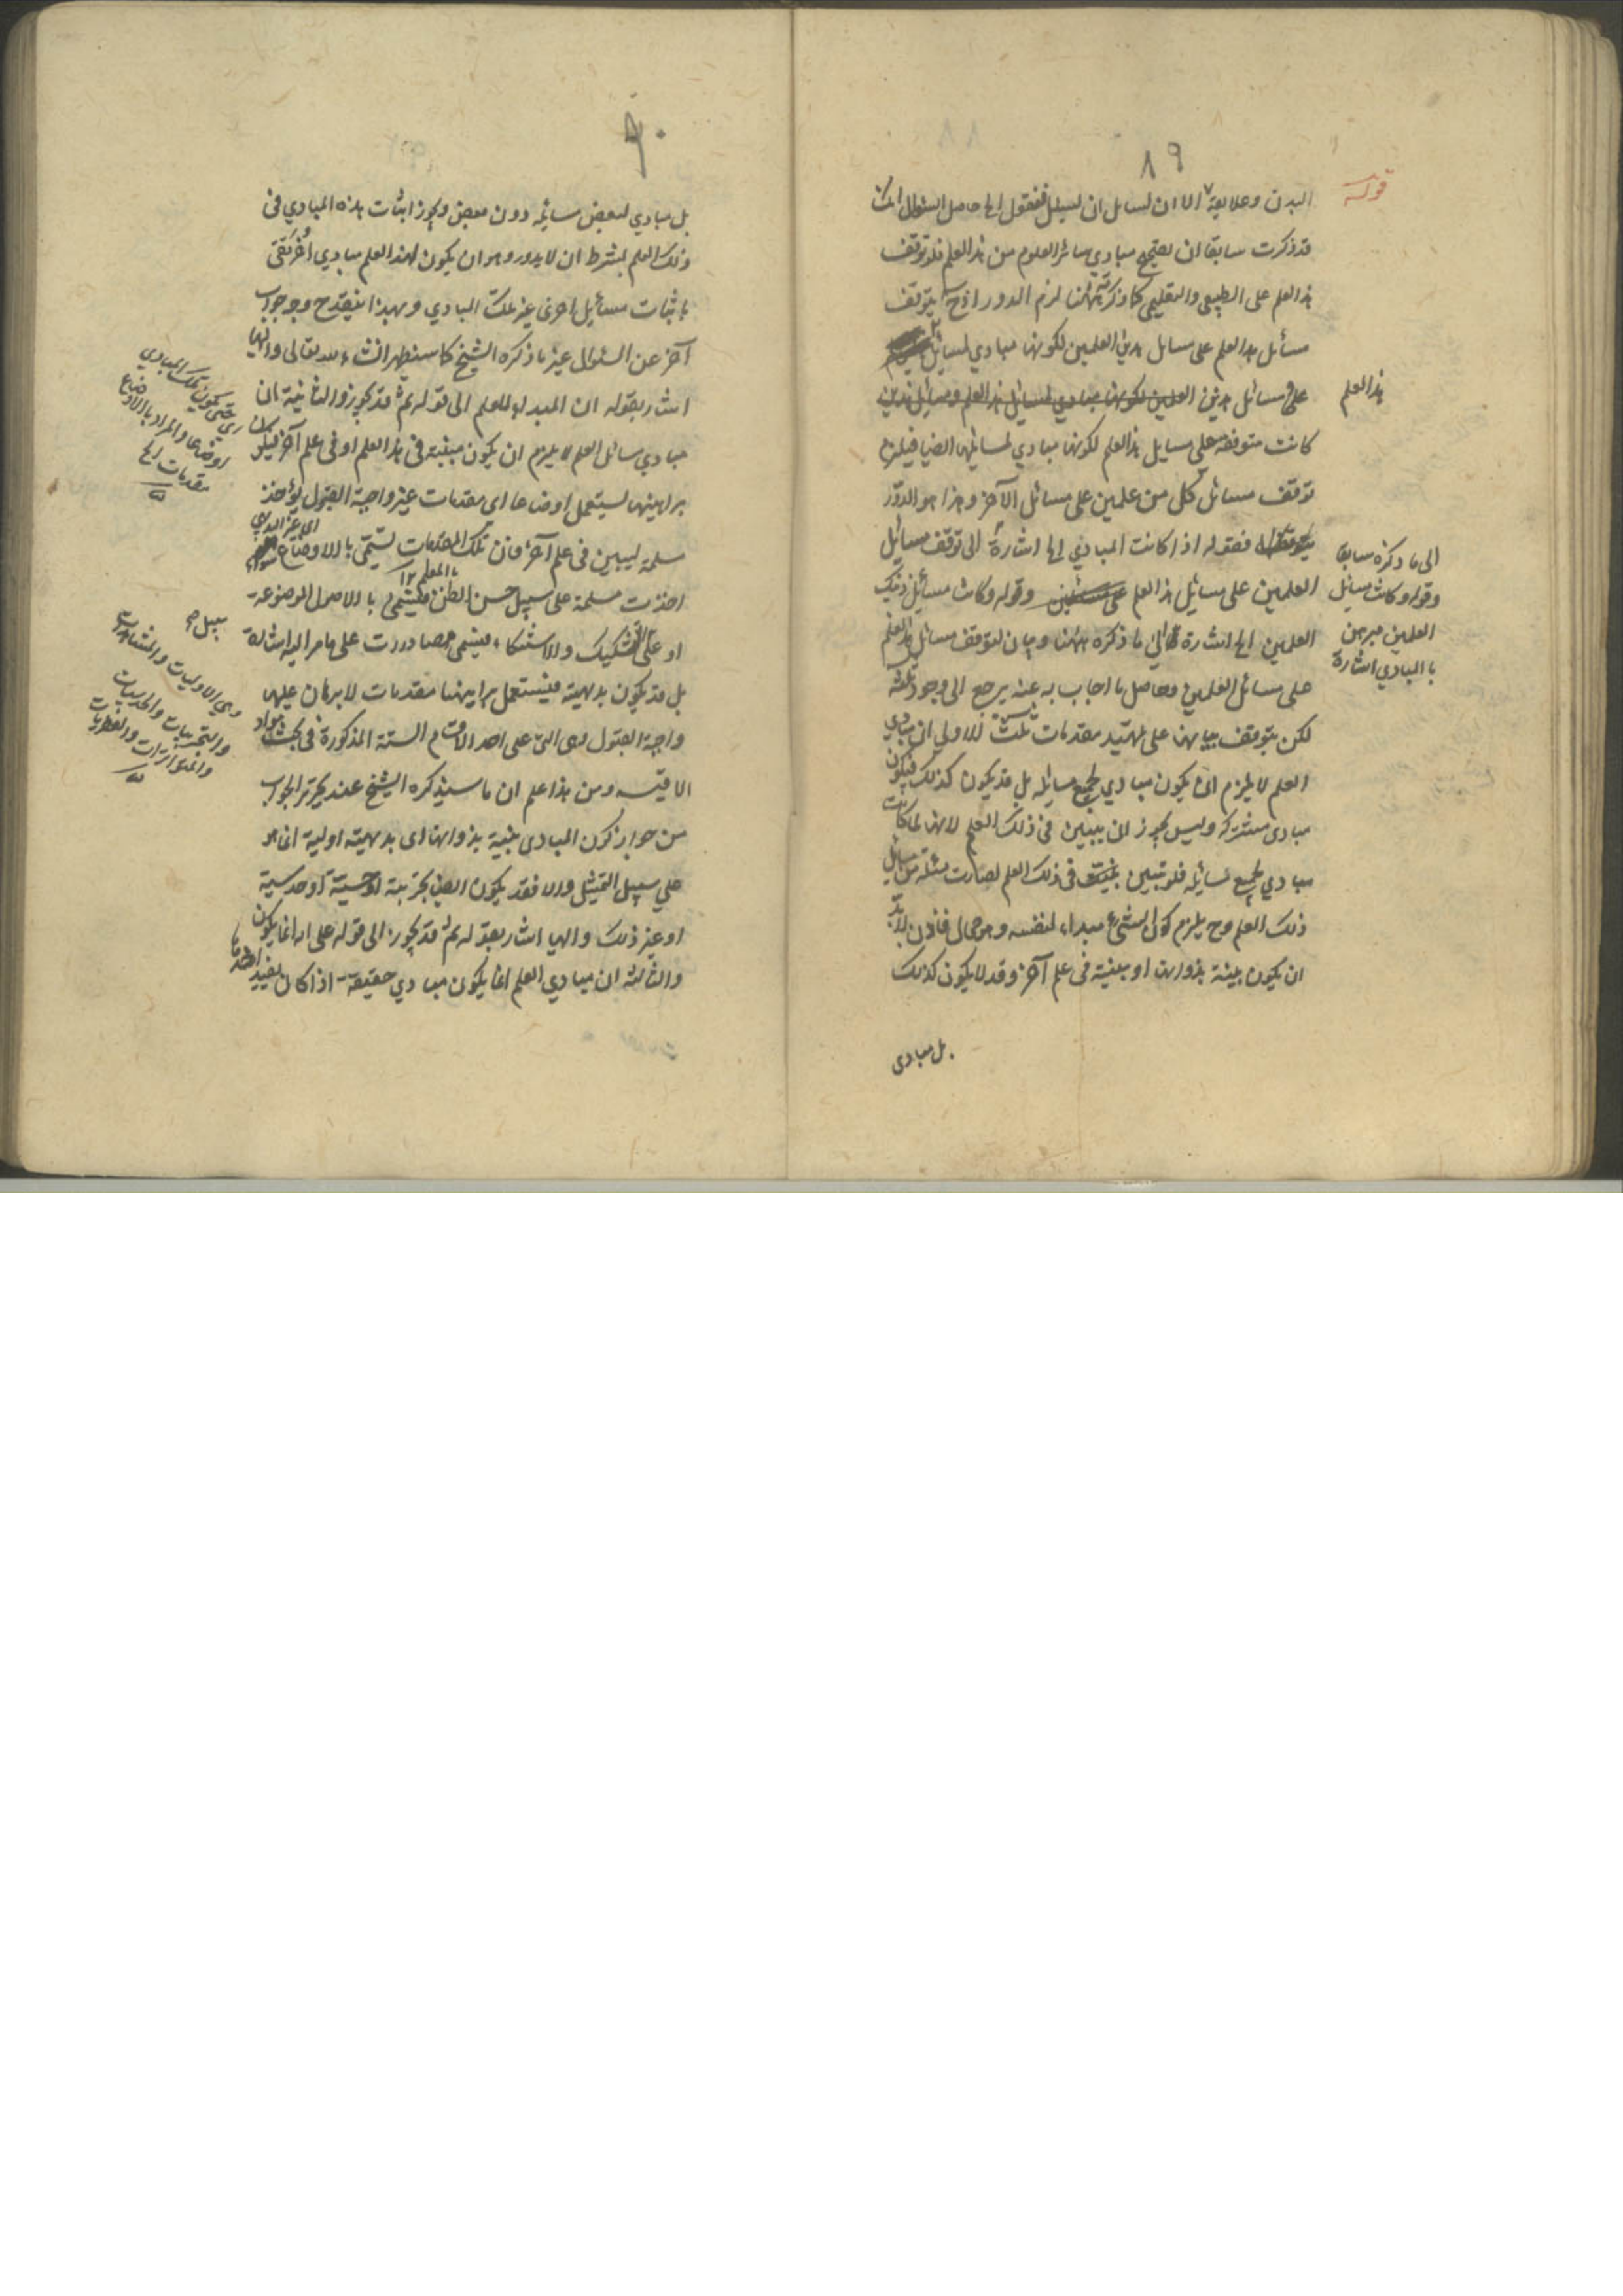 ٨٩
قوله
البدن وعلايقه الا ان لسائل ان يسئل فنقول الخ حاصل السؤال انك
قد ذكرت سابقا ان يصحح مبادي سائر العلوم من هذا العلم فلو توقف
هذا العلم على الطبيعي والتعليمي كما ذكرته ههنا لزم الدور اذ ح يتوقف
مسائل هذا العلم على مسائل هذين العلمين لكونها مبادي لمسائل
هذا العلم
على مسائل هذين العلمين لكونها مبادي لمسائل هذا العلم ومسائل هذين
كانت متوقفة على مسايل هذا العلم لكونها مبادي لمسائلها ايضا فيلزم
توقف مسائل كل من علمين على مسائل الآخر وهذا هو الدور
فقوله اذا كانت المبادي الخ اشارة الى توقف مسائل
العلمين على مسائل هذا العلم وقوله وكانت مسائل ذينك
العلمين الخ اشارة الى ما ذكره ههنا وبيان لتوقف مسائل هذا العلم
الى ما ذكره سابقا
وقوله وكانت مسائل
العلمين يبرهن
بالمبادي اشارة
على مسائل العلمين وحاصل ما اجاب به عنه يرجع الى وجوه ثلثة
لكن يتوقف بيانها على تمهيد مقدمات ثلث الاولى ان مبادي
العلم لا يلزم ان يكون مبادي لجميع مسايله بل قد يكون كذلك فيكون
مبادي مشتركة وليس يجوز ان يبين في ذلك العلم لانها لما كانت
مبادي لجميع مسائله فلو تبين في ذلك العلم لصارت مسئلة من مسايل
ذلك العلم وح يلزم كون الشيء مبداء لنفسه وهو محال فاذن لابد
ان يكون بينة بذواتها او مبينة في علم آخر وقد لا يكون كذلك
بل مبادي
٩٠
بل مبادي لبعض مسائله دون بعض ويجوز اثبات هذه المبادي في
ذلك العلم بشرط ان لا يدور وهو ان يكون لهذا العلم مبادي اخر تفي
باثبات مسائل اخرى غير تلك المبادي وبهذا ينقدح وجه جواب
آخر عن السؤال غير ما ذكره الشيخ كما سنظهر انشاء الله تعالى واليها
اشار بقوله ان المبدء للعلم الى قوله ثم قد يجوز والثانية ان
مبادي مسائل العلم لا يلزم ان يكون مبينة في هذا العلم او في علم آخر ليكون
براهينها يستعمل اوضاعا اي مقدمات غير واجبة القبول يؤخذ
مسلمة ليبين في علم آخر فان تلك المقدمات تسمى بالاوضاع سواء
اخذت مسلمة على سبيل حسن الظن بالمعلم فيسمى بالاصول الموضوعة
او على سبيل التشكيك والاستنكار فيسمى مصادرات على ما مر اليه اشارة
بل قد يكون بديهية فيستعمل براهينها مقدمات لا برهان عليها
واجبة القبول وهي التي على احد الاقسام الستة المذكورة في بحث مواد
الاقيسة ومن هذا علم ان ما سيذكره الشيخ عند تحرير الجواب
من جواز كون المبادي بينة بذواتها اي بديهية اولية انما هو
على سبيل التمثيل والا فقد يكون ايضا تجربية او حسية او حدسية
او غير ذلك واليها اشار بقوله ثم قد يجوز الى قوله على انه انما يكون
والثالثة ان مبادي العلم انما يكون مبادي حقيقة اذا كان يفيد اخذها
اي حتى يكون تلك المبادي
اوضاعا والمراد بالاوضاع
مقدمات الخ
اي غير البديهي
وهي الاوليات والمشاهدات
والتجربيات والحدسيات
والمتواترات والفطريات